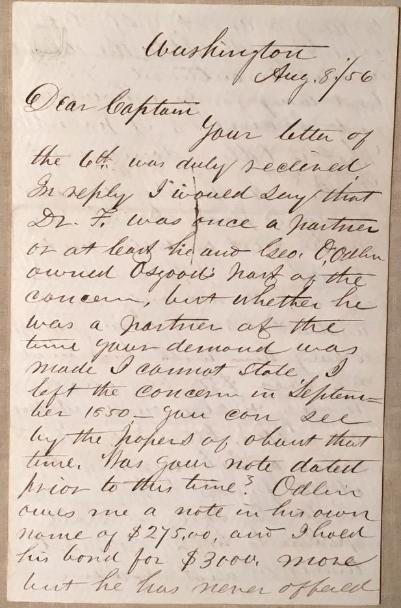 Washington
Aug. 8/56
Dear Captain
Your letter of
the 6th was duly received
In reply I would say that
Dr. F. was once a partner
or at least he and Geo. O. Odlin
owned Osgood's part of the
concern, but whether he
was a partner at the
time your demand was
made I cannot state. I
left the concern in Septem=
ber 1850 — you can see
by the papers of about that
time. Was your note dated
prior to this time? Odlin
owes me a note in his own
name of $275.00, and I hold
his bond for $3000. more
but he has never offered